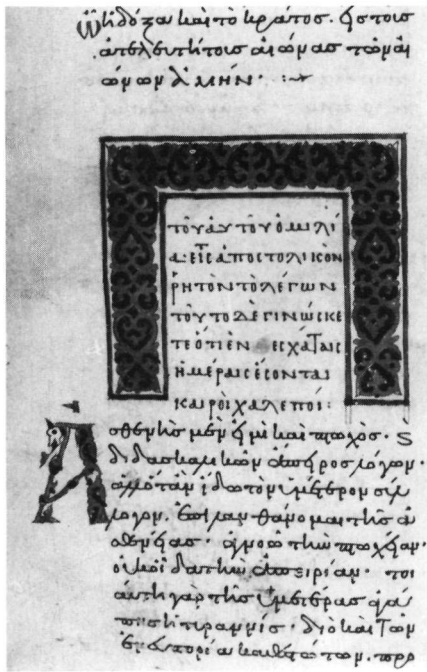 ᾧ ἡ δόξα καὶ τὸ κράτος. εἰς τοὺς
ἀτελευτήτοις αἰῶνας τῶν αἰ
ώνων ἀμήν
τοῦ αὐτοῦ ὁμιλί
α εἰς ἀποστολικὸν
ῥητὸν τὸ λέγων
τοῦτο δὲ γινώσκε
τε ὅτι ἐν ἐσχάταις
ἡμέραις ἔσονται
καιροὶ χαλεποί:
Ἀσθενὴς μὲν εἰμὶ καὶ πτωχὸς. καὶ
διδασκαλικῶν ἄπειρος λόγων.
ἀλλ' ὅταν ἴδω τὸν ὑμέτερον σύλ
λογον. ἐπιλανθάνομαι τῆς ἀ
σθενείας. ἀγνοῶ τὴν πτωχείαν.
οὐκ οἶδα τὴν ἀπειρίαν. τοι
αύτη γὰρ τῆς ὑμετέρας ἀγά
πης ἡ τυραννίς. διὸ καὶ τῶν